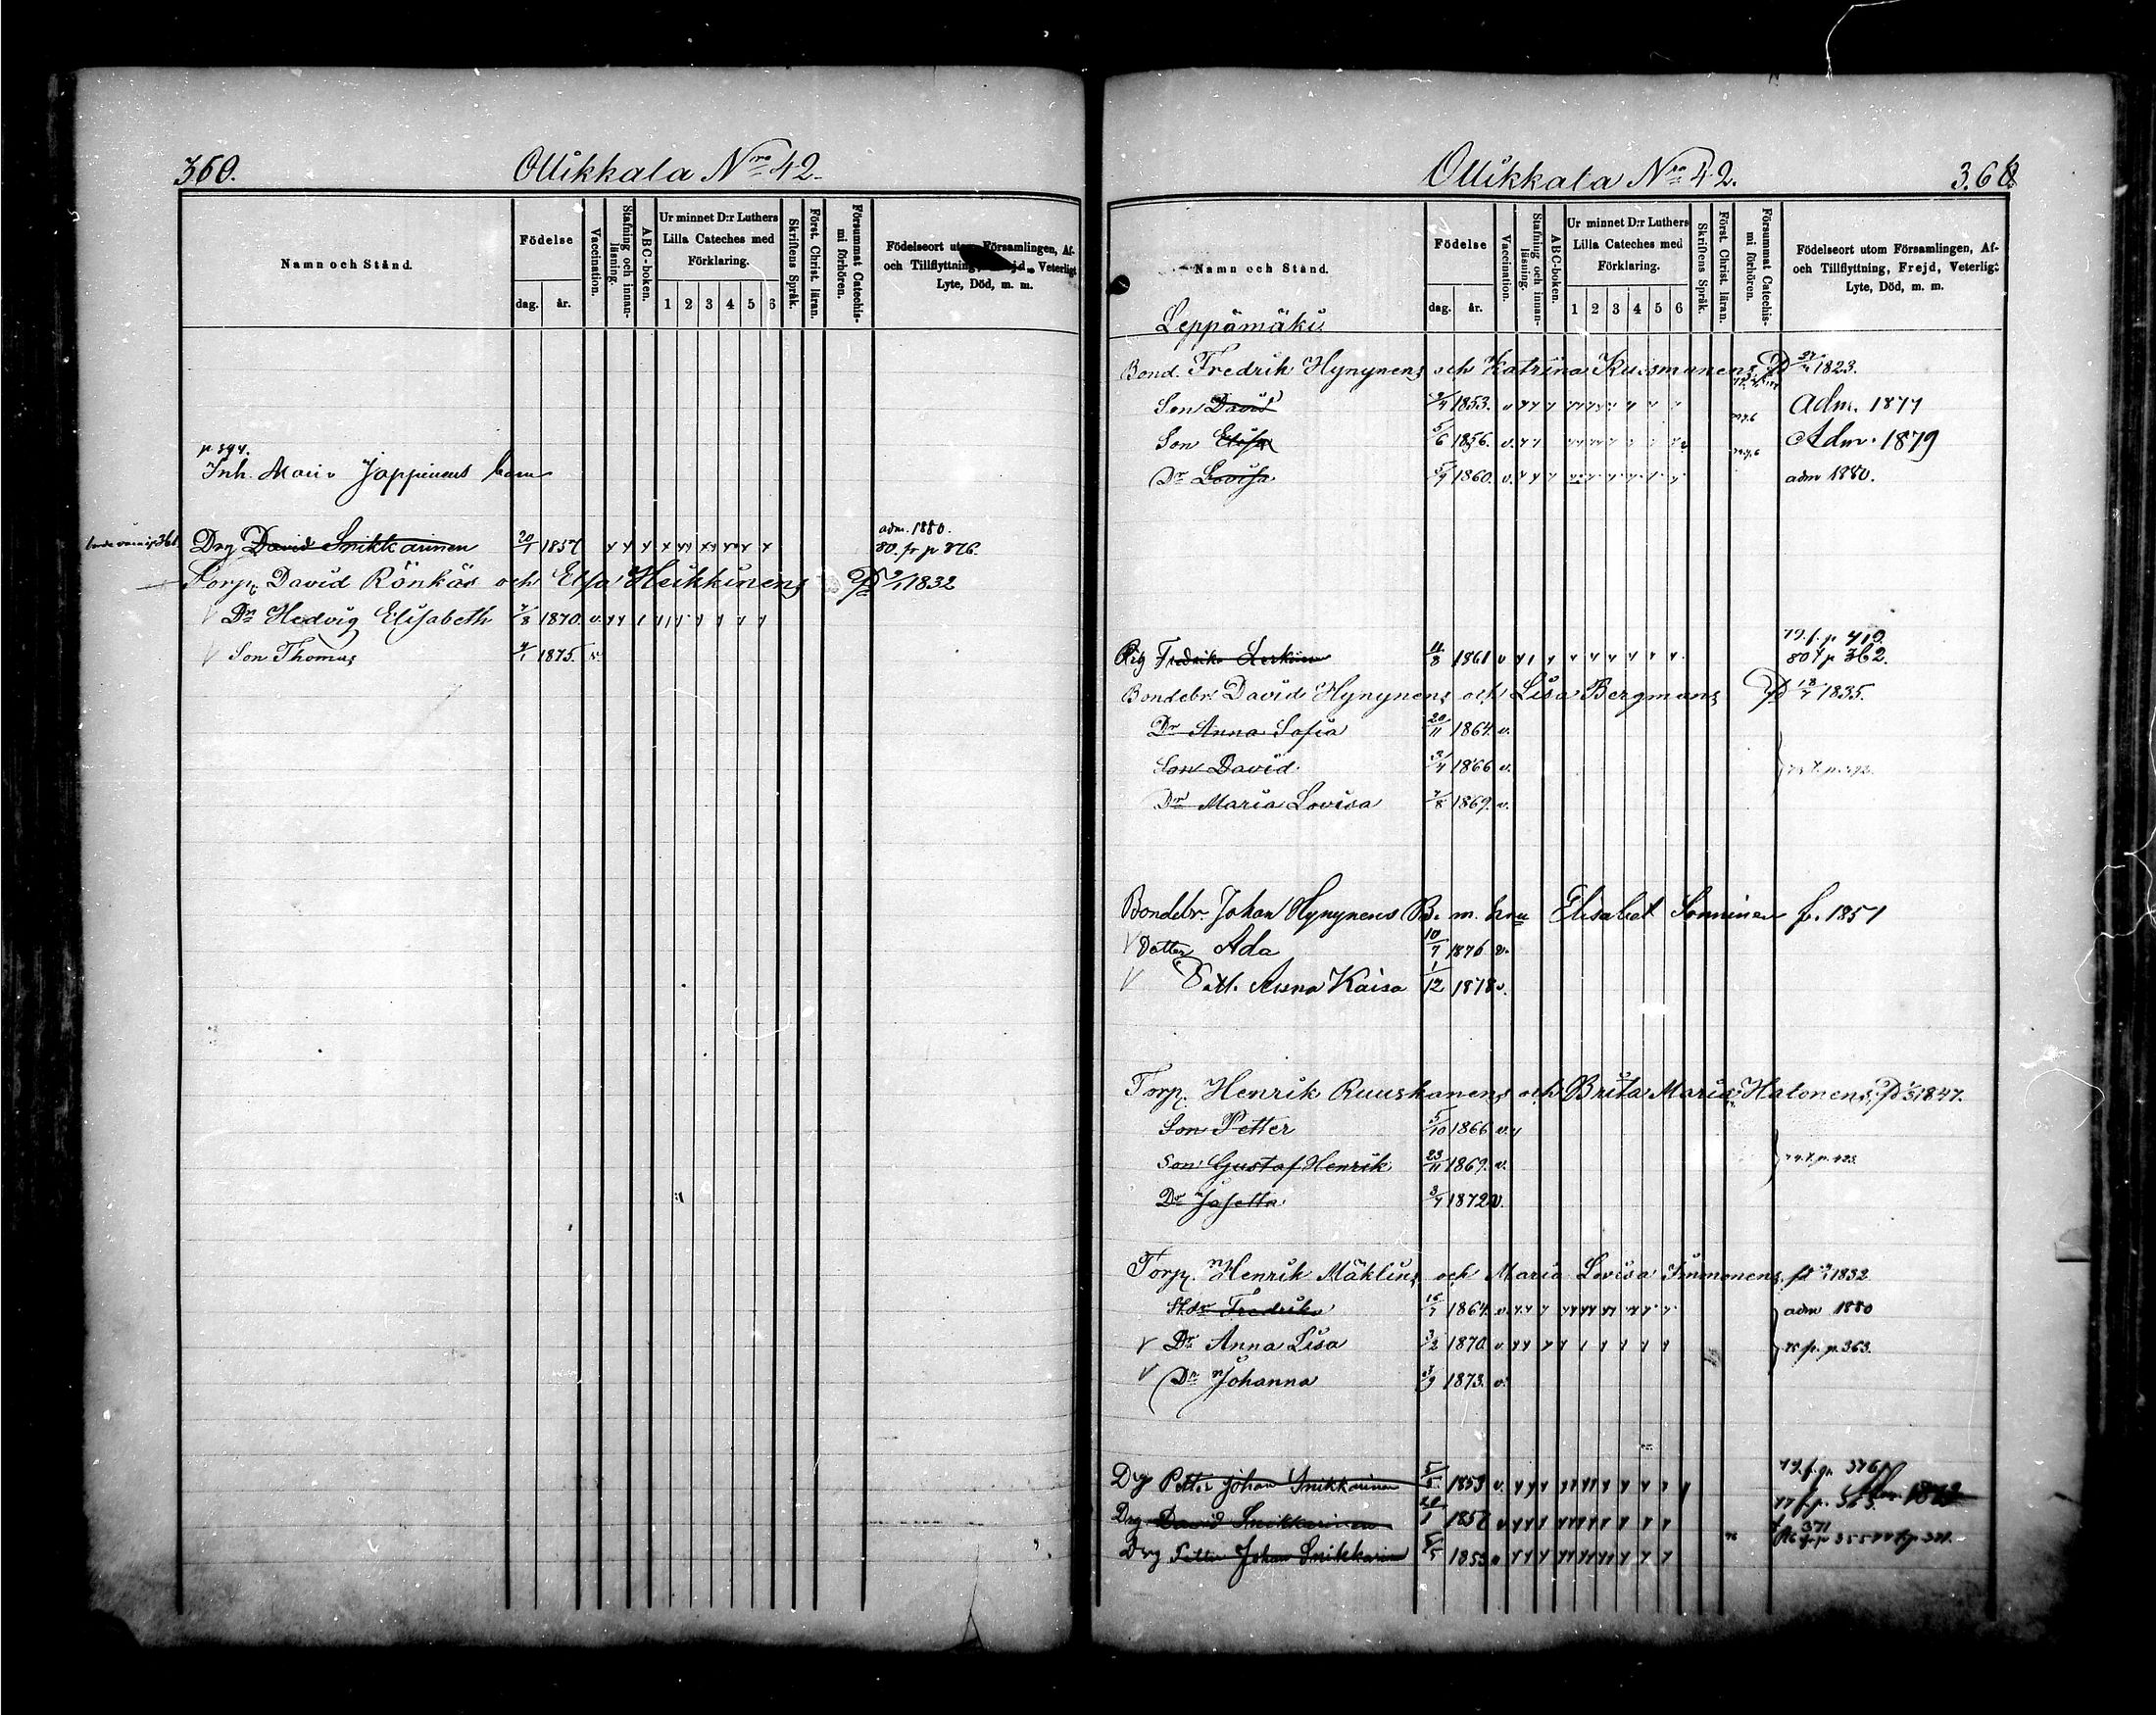 360. Ollikkala Nro 42.
Namn och Stånd. Födelse dag. år. Vaccination. Stafning och innanläsning. ABC-boken. Ur minnet D:r Luthers Lilla Cateches med Förklaring. 1 2 3 4 5 6 Skriftens Språk. Först. Christ. läran. Försummat Catechismi förhören. Födelseort utom Församlingen, Af- och Tillflyttning, Frejd, Veterligt Lyte, Död, m. m.
p 394.
Inh. Maria Jappinens barn
adm. 1880.
Drg David Snikkarinen 20/1 1857 80. fr p 376.
Torp. David Rönkäs och Elsa Heikkinens 1832
Dr Hedvig Elisabeth 7/8 1870 v.
Son Thomas 4/1 1875. v.
Ollikkala Nro 42. 361
Namn och Stånd. Födelse dag. år. Vaccination. Stafning och innanläsning. ABC-boken. Ur minnet D:r Luthers Lilla Cateches med Förklaring. 1 2 3 4 5 6 Skriftens Språk. Först. Christ. läran. Försummat Catechismi förhören. Födelseort utom Församlingen, Af- och Tillflyttning, Frejd, Veterligt Lyte, Död, m. m.
Leppämäki
Bond. Fredrik Hynynens och Katrina Kuismanens 1823.
Son David 1853. v Adm. 1877
Son Elisa 5/6 1856. v. Adm. 1879
Dr Lovisa 1860. v. adm 1880.
79. f. p 419.
Pig Fredrika 11/8 1861 v 80 f p 362.
Bondebr. David Hynynens och Lisa Bergmans 18/7 1835.
Dr Anna Sofia 20/11 1864. v.
Son David 3/4 1866 v.
Dr Maria Lovisa 7/8 1869. v.
Bondebr. Johan Hynynens B. m. hru Elisabet Sonninen f. 1851
Dotter Ada 10/7 1876 v.
Dott. Anna Kaisa 1/12 1878 v.
Torp. Henrik Ruuskanens och Brita Maria Halonens 1847.
Son Petter 5/10 1866 v.
Son Gustaf Henrik 23/11 1869. v.
Dr Josetta 3/4 1872 v.
Torp. Henrik Mäklins och Maria Lovisa Immonens 1832
Fredrika 16/7 1864. v. adm 1880
Dr Anna Lisa 3/2 1870 v fr. p. 363.
Dr Johanna 1873. v.
Drg Petter Johan Snikkarinen 5/5 1853 v. 79. f. p. 376
Drg David Snikkarinen 20/1 1857 v
Drg Petter Johan Snikkarinen 5/5 1853 v